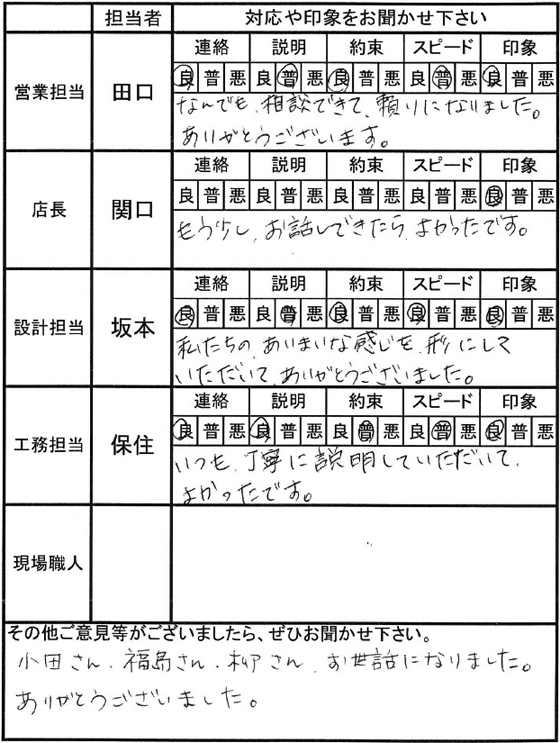 担当者 対応や印象をお聞かせ下さい
営業担当 田口
連絡 説明 約束 スピード 印象
良 普 悪 良 普 悪 良 普 悪 良 普 悪 良 普 悪
なんでも、相談できて、頼りになりました。
ありがとうございます。
店長 関口
連絡 説明 約束 スピード 印象
良 普 悪 良 普 悪 良 普 悪 良 普 悪 良 普 悪
もう少し、お話しできたら、よかったです。
設計担当 坂本
連絡 説明 約束 スピード 印象
良 普 悪 良 普 悪 良 普 悪 良 普 悪 良 普 悪
私たちの、あいまいな感じを、形にして
いただいて、ありがとうございました。
工務担当 保住
連絡 説明 約束 スピード 印象
良 普 悪 良 普 悪 良 普 悪 良 普 悪 良 普 悪
いつも、丁寧に説明していただいて、
よかったです。
現場職人
その他ご意見等がございましたら、ぜひお聞かせ下さい。
小田さん、福島さん、柳さん、お世話になりました。
ありがとうございました。